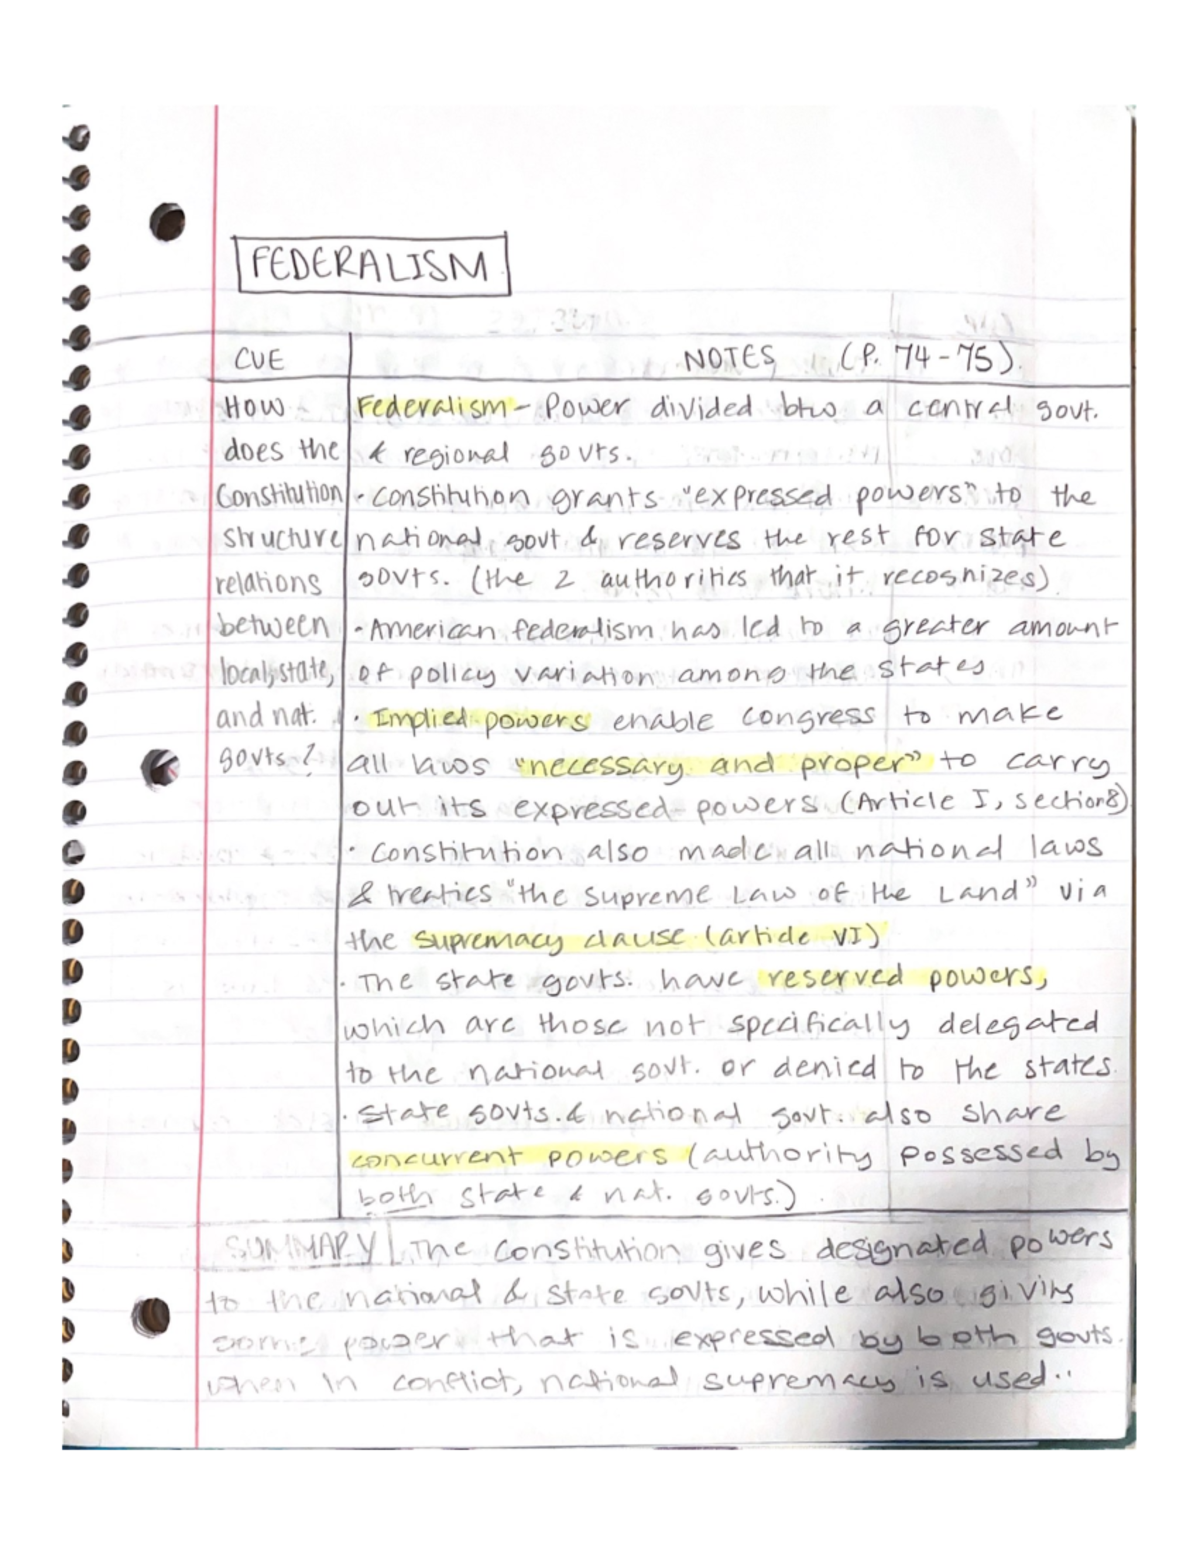 FEDERALISM
CUE
NOTES (P. 74-75).
How
does the
Constitution
structure
relations
between
local, state,
and nat.
govts.?
Federalism - Power divided btw a central govt.
& regional govts.
· Constitution grants "expressed powers" to the
national govt & reserves the rest for state
govts. (the 2 authorities that it recognizes)
· American federalism has led to a greater amount
of policy variation among the states
· Implied powers enable congress to make
all laws "necessary and proper" to carry
out its expressed powers (Article I, section 8)
· Constitution also made all national laws
& treaties "the Supreme Law of the Land" via
the supremacy clause (article VI)
· The state govts. have reserved powers,
which are those not specifically delegated
to the national govt. or denied to the states.
· State govts. & national govt. also share
concurrent powers (authority possessed by
both state & nat. govts.).
SUMMARY The Constitution gives designated powers
to the national & state govts, while also giving
some power that is expressed by both govts.
when in conflict, national supremacy is used..